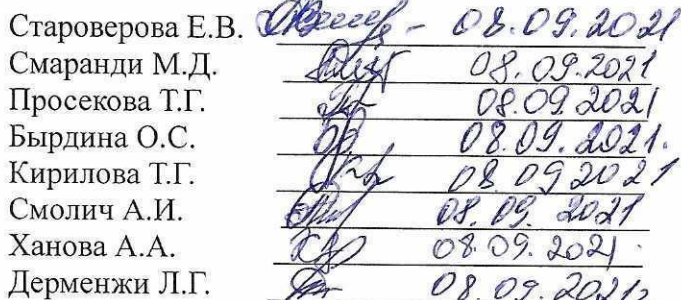 Староверова Е.В. - 08.09.2021
Смаранди М.Д. 08.09.2021
Просекова Т.Г. 08.09.2021
Бырдина О.С. 08.09.2021.
Кирилова Т.Г. 08.09 2021
Смолич А.И. 08.09. 2021
Ханова А.А. 08.09.2021.
Дерменжи Л.Г. 08.09.2021г